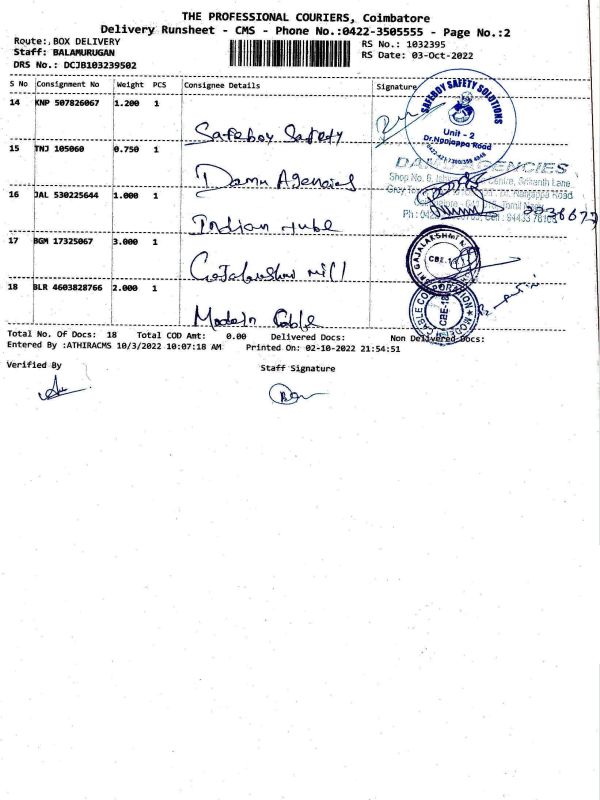 THE PROFESSIONAL COURIERS, Coimbatore
Delivery Runsheet - CMS - Phone No.:0422-3505555 - Page No.:2
Route:,BOX DELIVERY
RS No.: 1032395
Staff: BALAMURUGAN
RS Date: 03-Oct-2022
DRS No.: DCJB103239502
S No Consignment No Weight PCS Consignee Details Signature
14 KNP 507826067 1.200 1
Safeboy Safety
SAFEBOY SAFETY SOLUTIONS
Unit - 2
Dr.Nanjappa Road
15 TNJ 105060 0.750 1
Damu Agencies
AGENCIES
16 JAL 530225644 1.000 1
Indian tube
17 BGM 17325067 3.000 1
Gajalakshmi mill
SRI GAJALAKSHMI
18 BLR 4603828766 2.000 1
Modern Cable
CABLE CORPORATION
CBE-18
Total No. Of Docs: 18 Total COD Amt: 0.00 Delivered Docs: Non Delivered Docs:
Entered By :ATHIRACMS 10/3/2022 10:07:18 AM Printed On: 02-10-2022 21:54:51
Verified By
Staff Signature